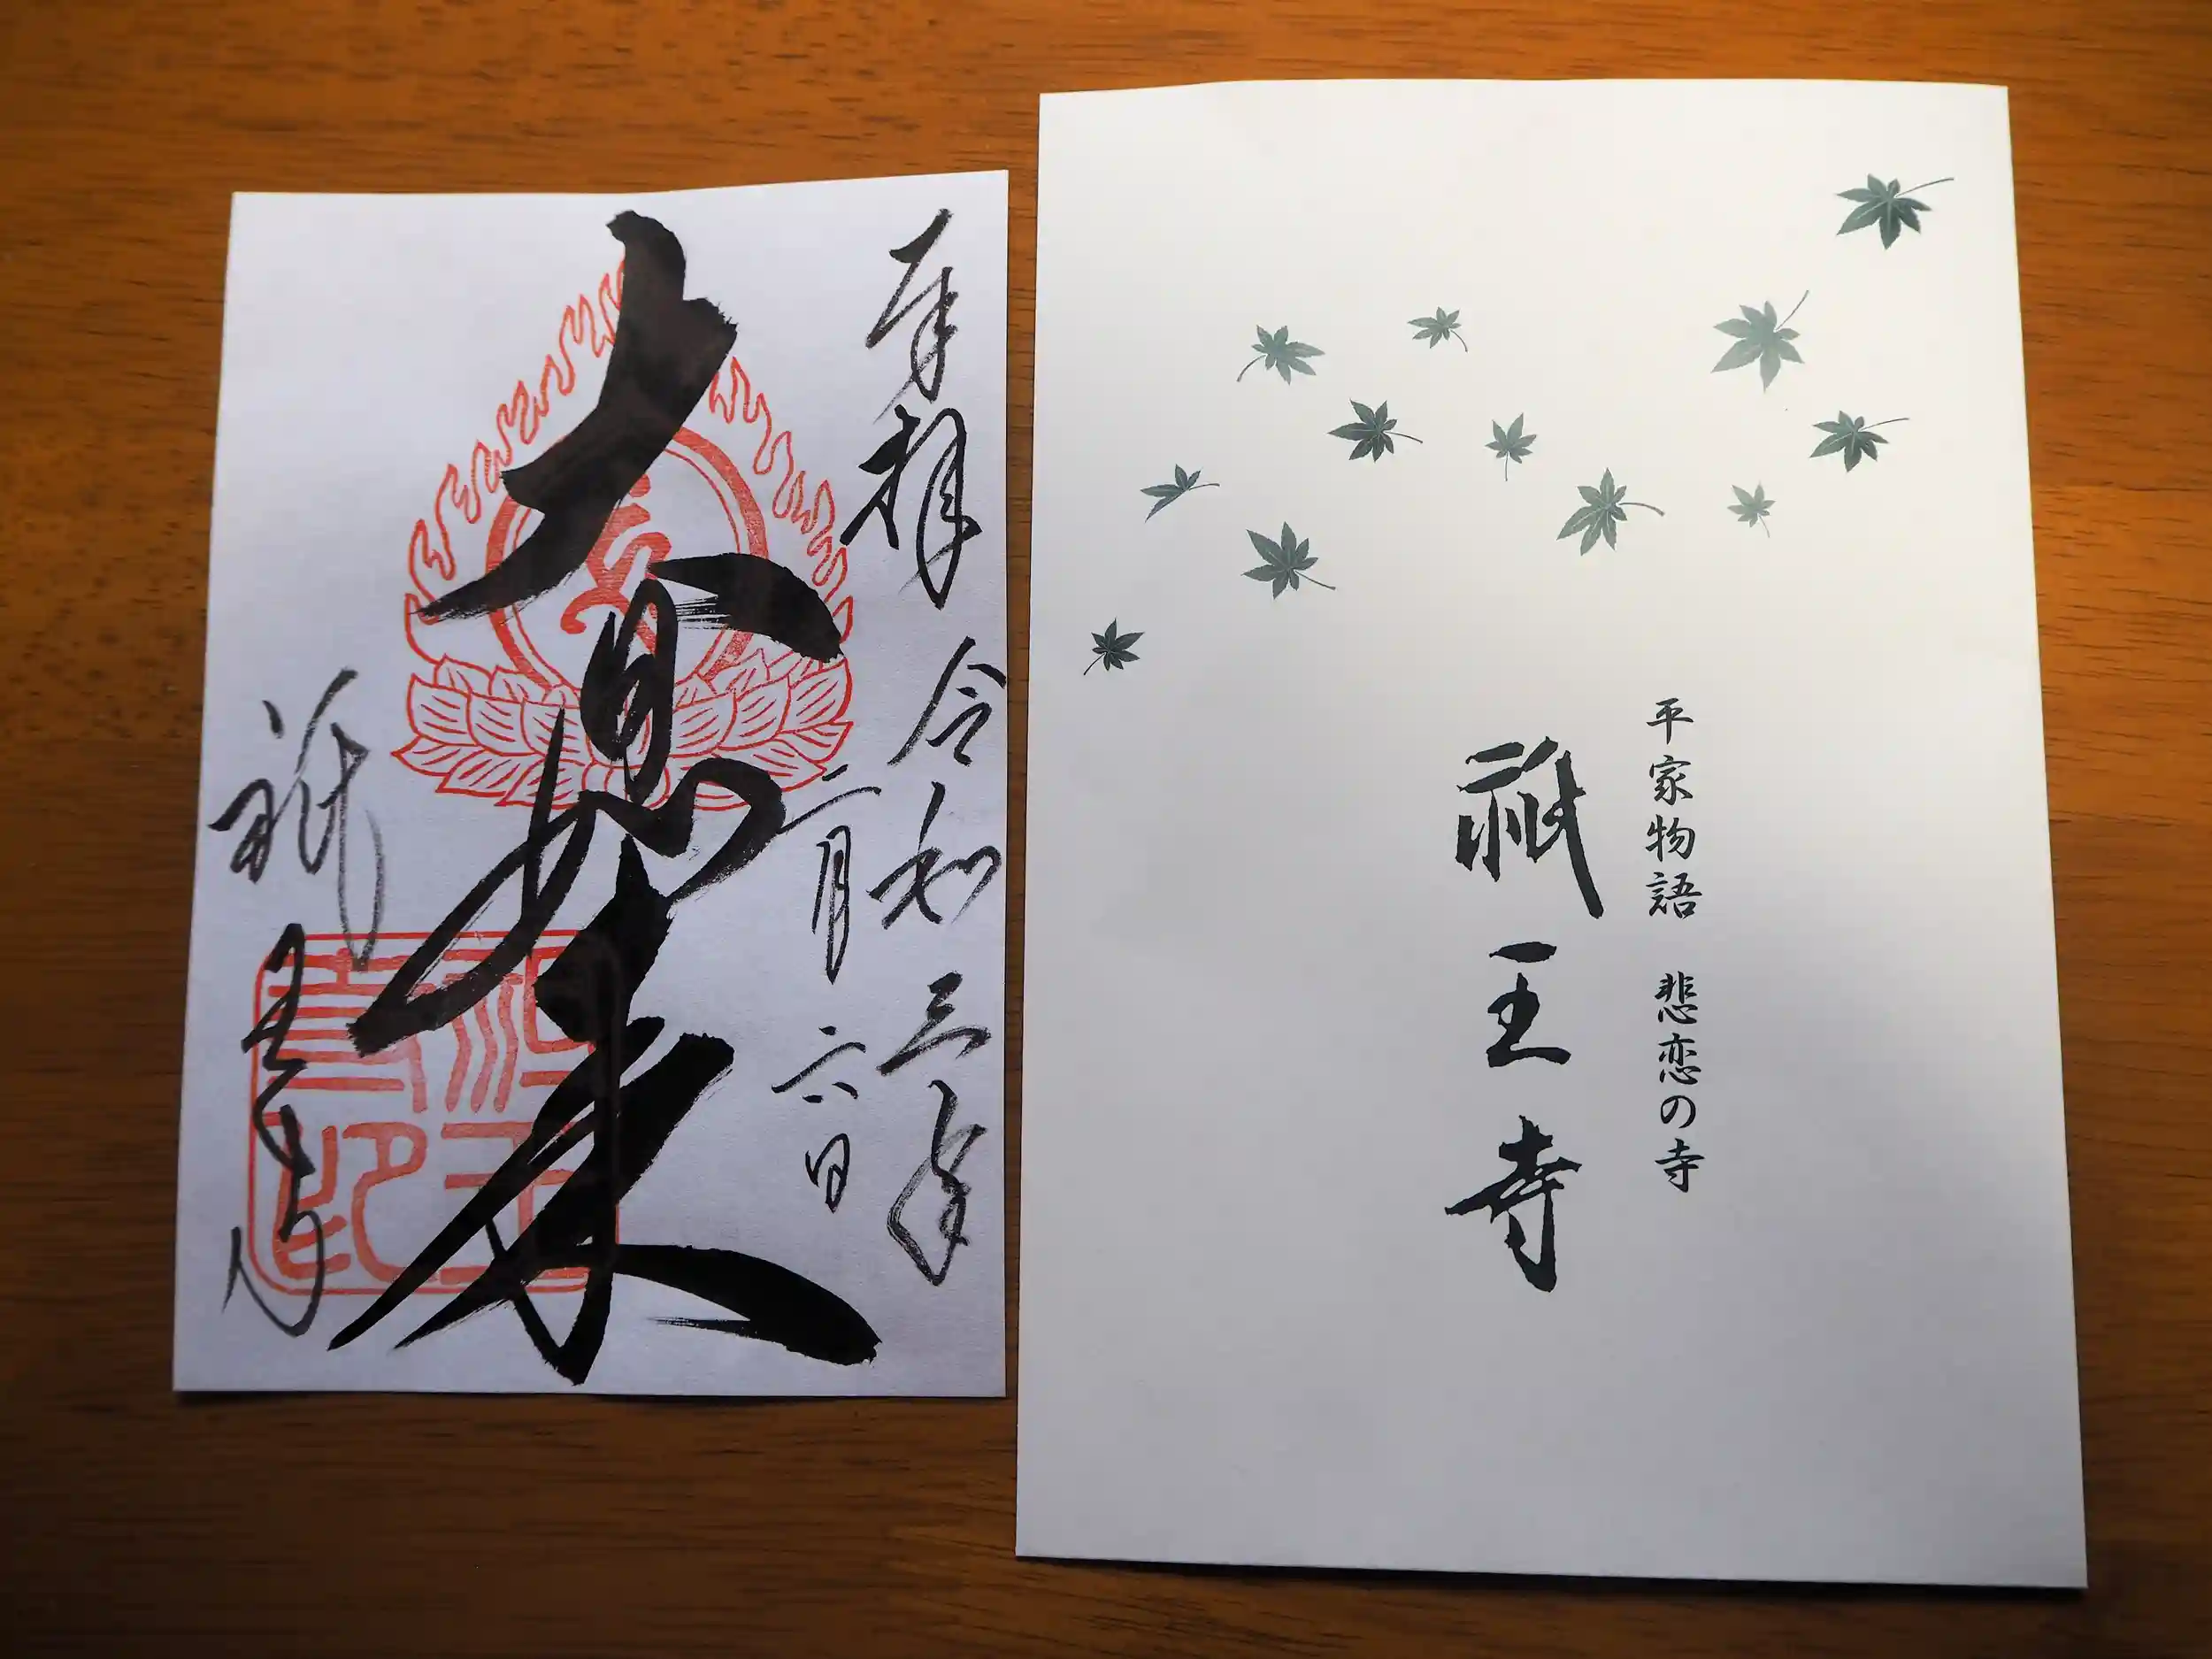 奉拝 令和三年
二月六日
大日如来
祇王寺
祇王寺印
平家物語 悲恋の寺
祇王寺